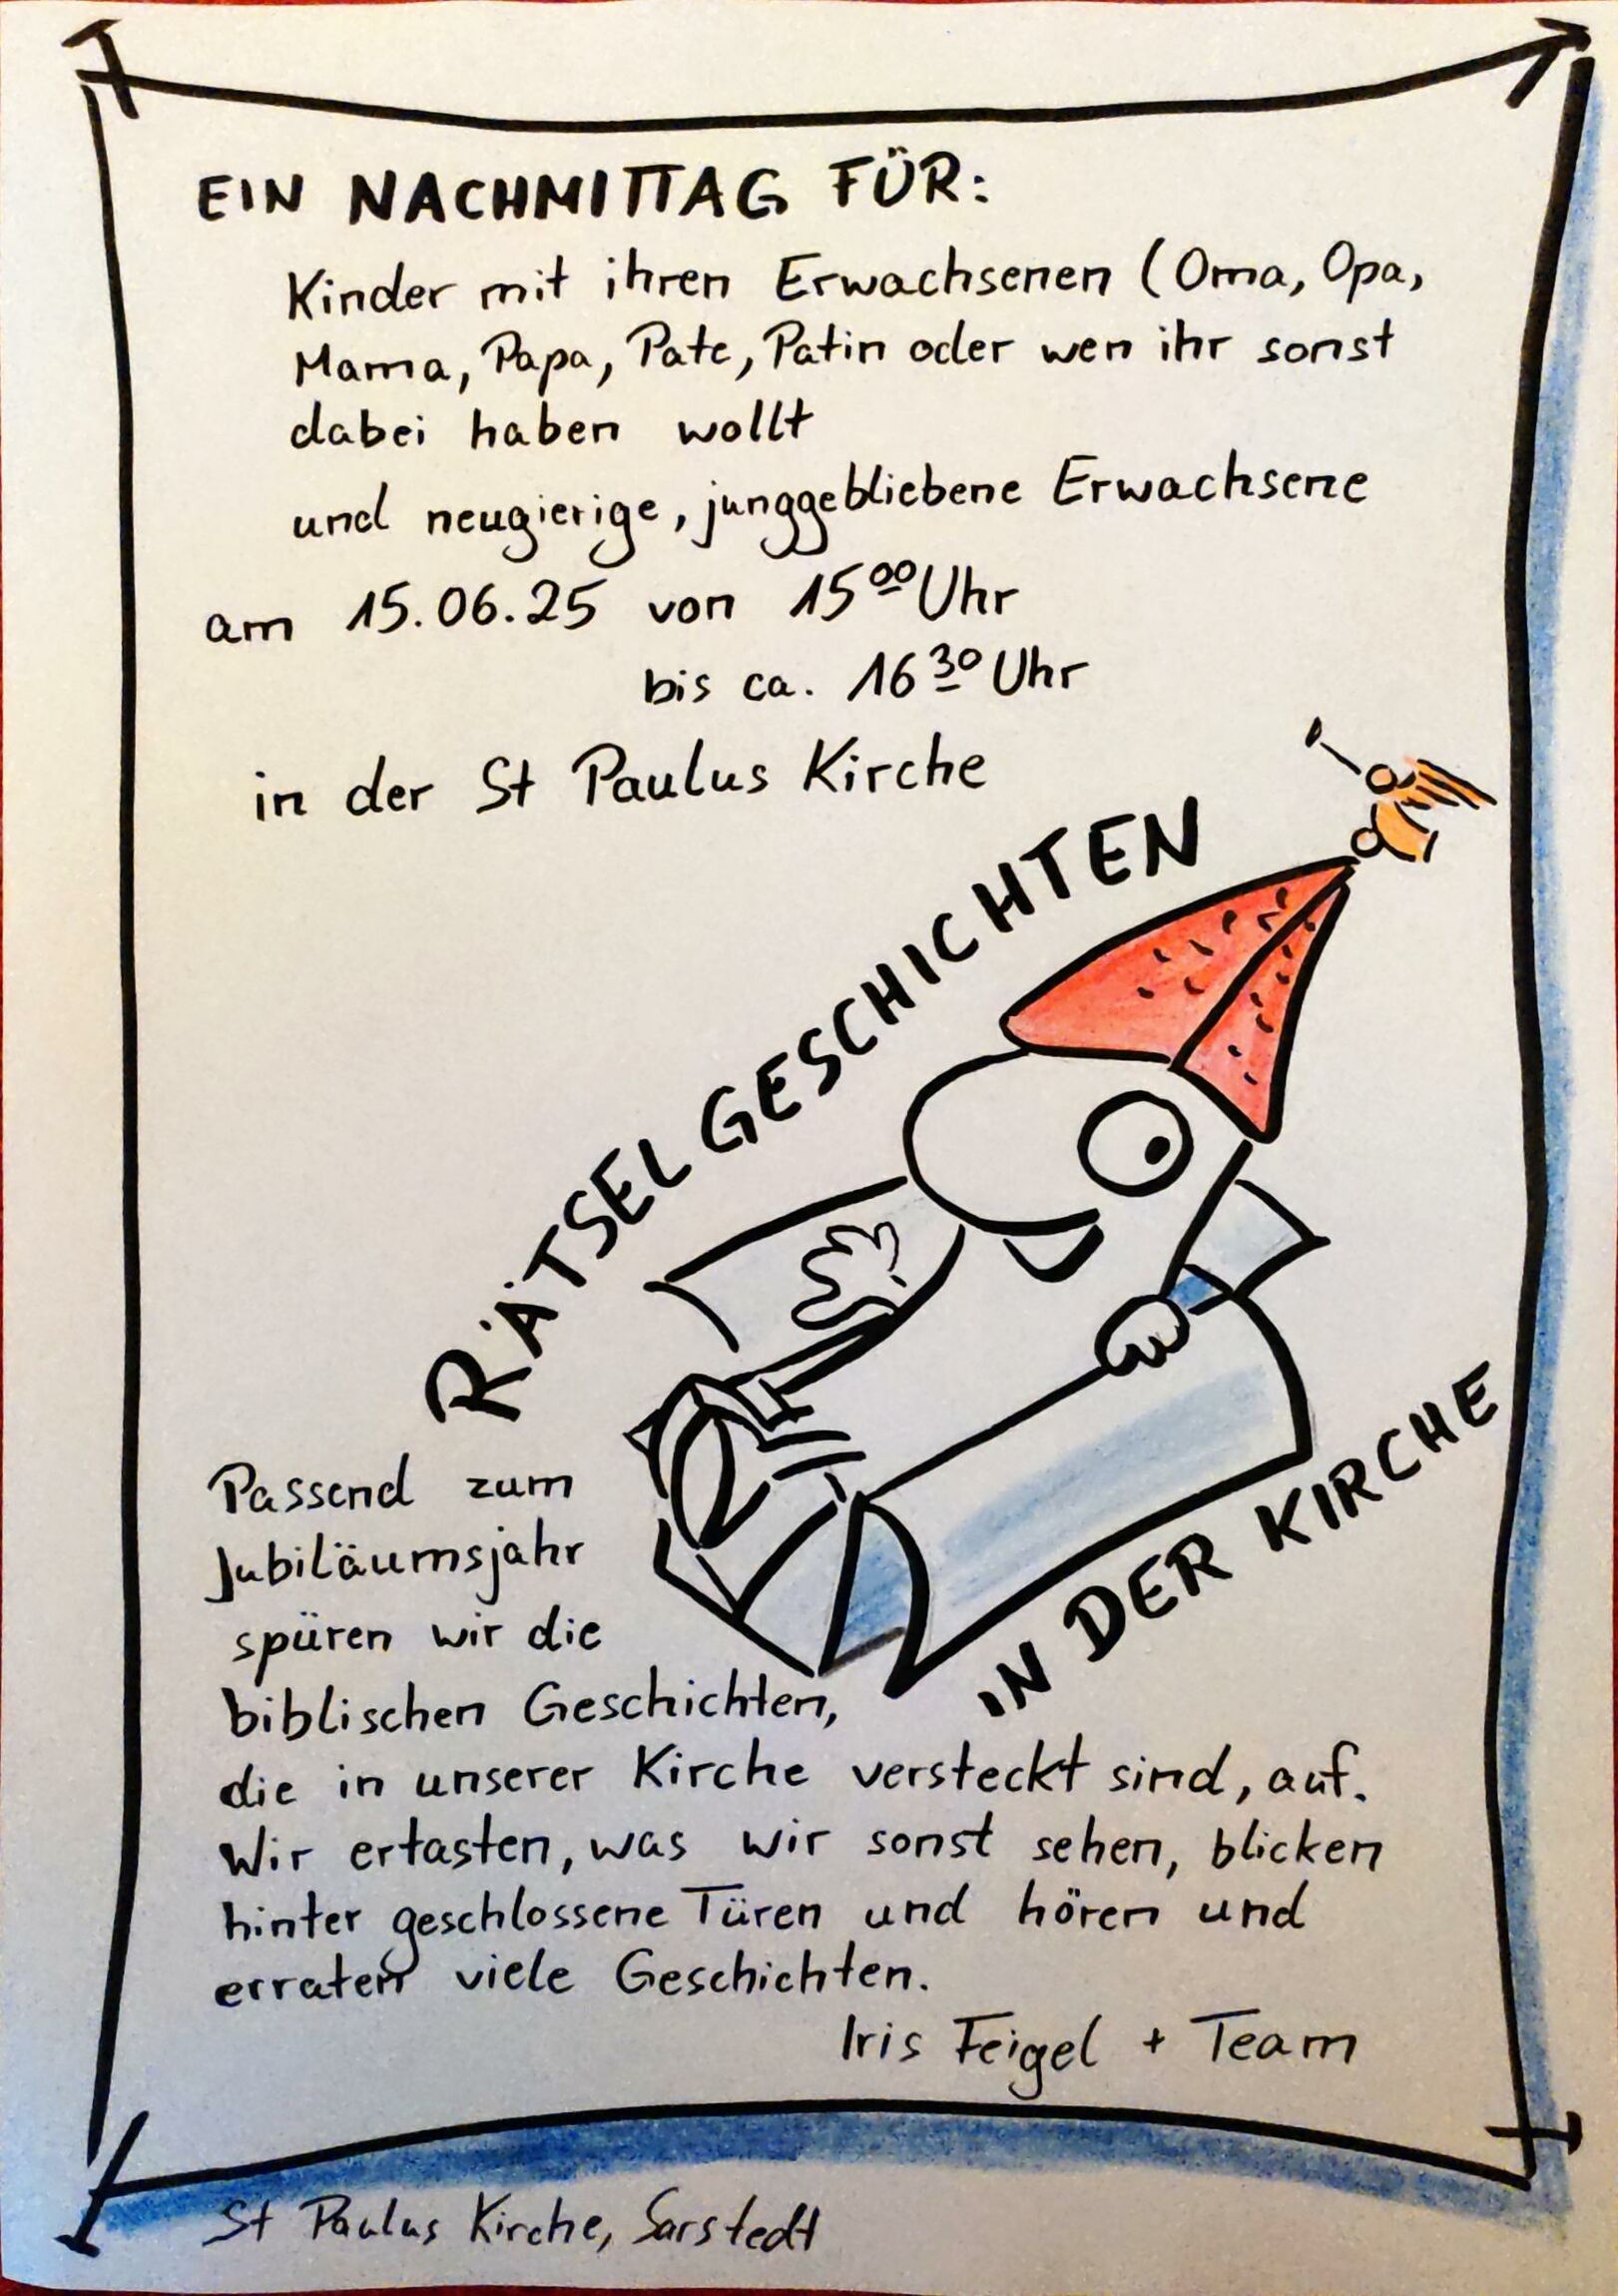 EIN NACHMITTAG FÜR:
Kinder mit ihren Erwachsenen (Oma, Opa,
Mama, Papa, Pate, Patin oder wen ihr sonst
dabei haben wollt
und neugierige, junggebliebene Erwachsene
am 15.06.25 von 15⁰⁰ Uhr
bis ca. 16³⁰ Uhr
in der St Paulus Kirche
RÄTSELGESCHICHTEN
IN DER KIRCHE
Passend zum
Jubiläumsjahr
spüren wir die
biblischen Geschichten,
die in unserer Kirche versteckt sind, auf.
Wir ertasten, was wir sonst sehen, blicken
hinter geschlossene Türen und hören und
erraten viele Geschichten.
Iris Feigel + Team
St Paulus Kirche, Sarstedt